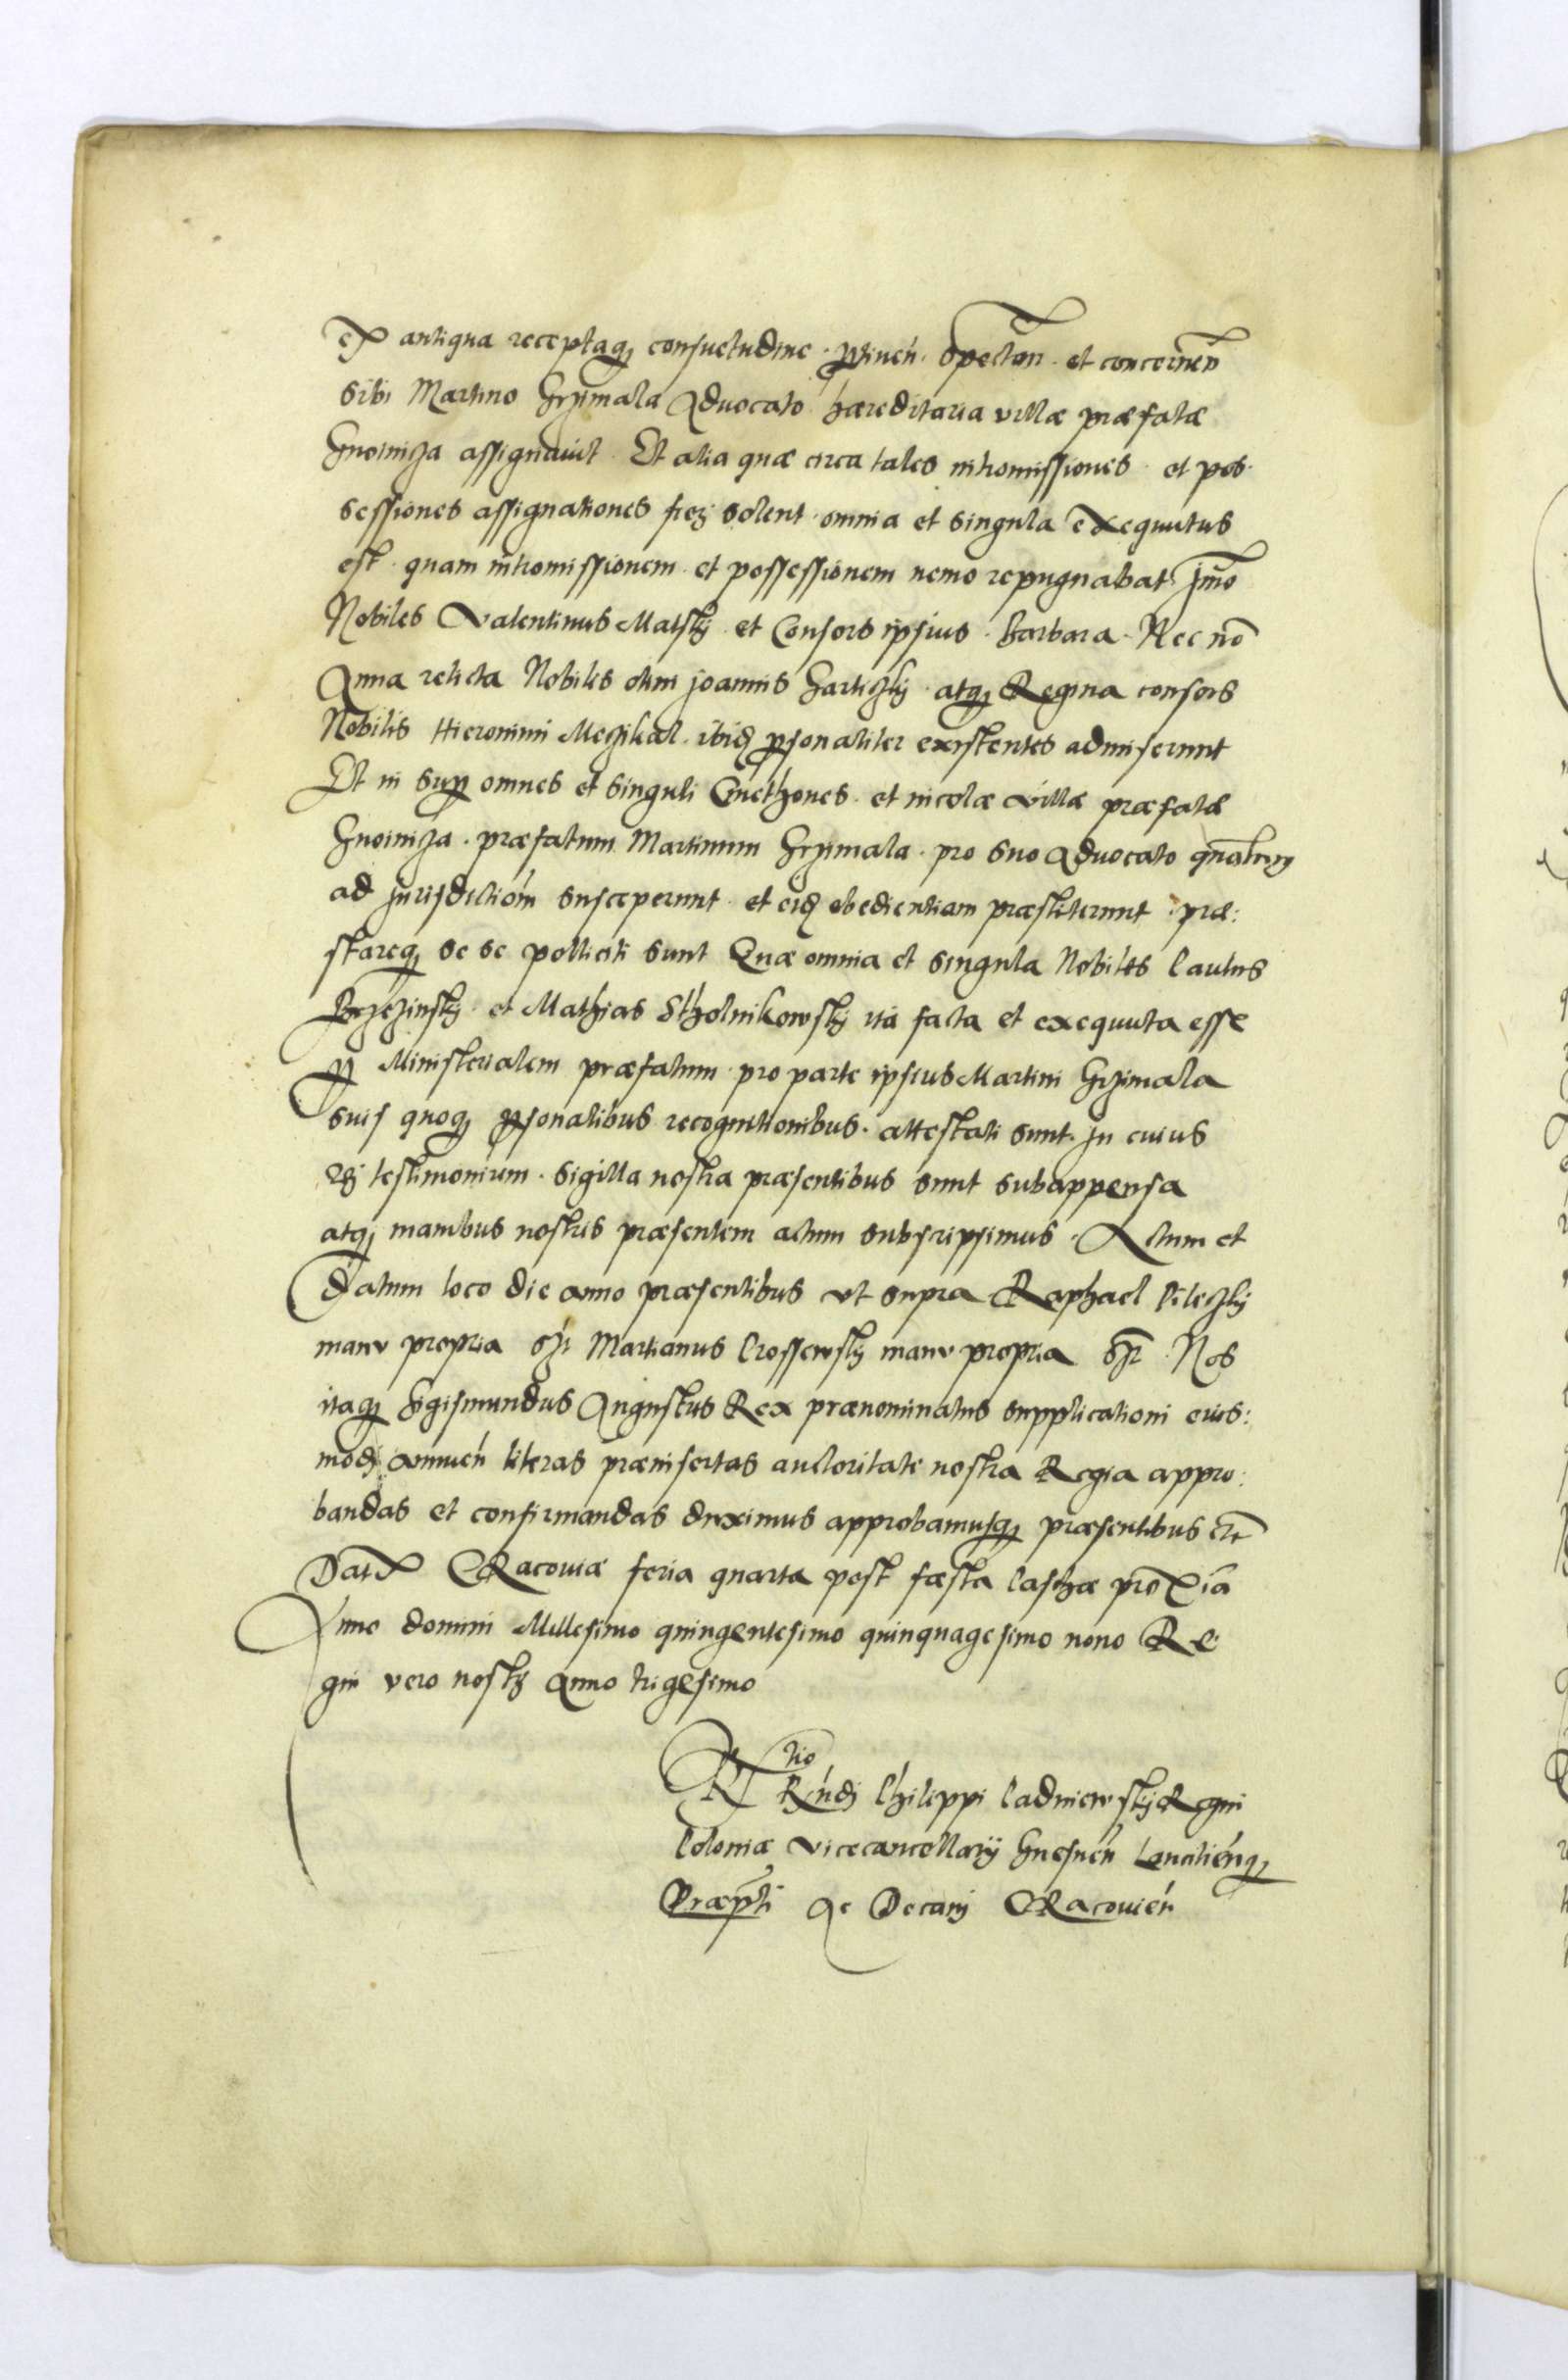 ex antiqua receptaq consuetudine ptinen spectan et concernen
sibi Martino Grzimala Aduocato hæreditaria villæ præfatæ
Gnoinicza assignauit Et alia quæ circa tales intromissiones et pos
sessiones assignationes fieri solent omnia et singula exequutus
est quam intromissionem et possessionem nemo repugnabat Jmo
Nobiles Valentinus Matskÿ et Consors ipsius Barbara Nec no
Anna relicta Nobilis olim Joannis atq Regina consors
Nobilis Hieronimi ibid psonaliter existentes admiserunt
Et in sup omnes et singuli Cmethones et incolæ villæ præfatæ
Gnoinicza præfatum Martinum Grzimala pro suo Aduocato
ad Jurisdictiom susceperunt et eid obedientiam præstiterunt præ:
stareq se se polliciti sunt Quæ omnia et singula Nobiles Paulus
Brzezinskÿ et Mathias Stholnikowskÿ ita facta et exequuta esse
p Ministerialem præfatum pro parte ipsius Martini Grzimala
suis quoq psonalibus recognitionibus attestati sunt Jn cuius
rei testimonium sigilla nostra præsentibus sunt subappensa
atq manibus nostris præsentem actum subscripsimus Actum et
Datum loco die anno præsentibus vt supra Raphael Pileczkÿ
manu propria sszt Martianus Crossewskÿ manu propria sszt Nos
itaq Sigismundus Augustus Rex prænominatus supplicationi eius:
modj annuen literas præinsertas auctoritate nostra Regia appro:
bandas et confirmandas duximus approbamusq præsentibus etc
Dat CRacouiæ feria quarta post fæsta Paschæ proxia
Anno domini Millesimo quingentesimo quinquagesimo nono Re
gni vero nostrj Anno trigesimo
Rtio Rndj Philippi Padniewskÿ Regni
Poloniæ vicecancellarÿ Gnesnen Lancitienq
Præpti Ac Decanj CRacouien